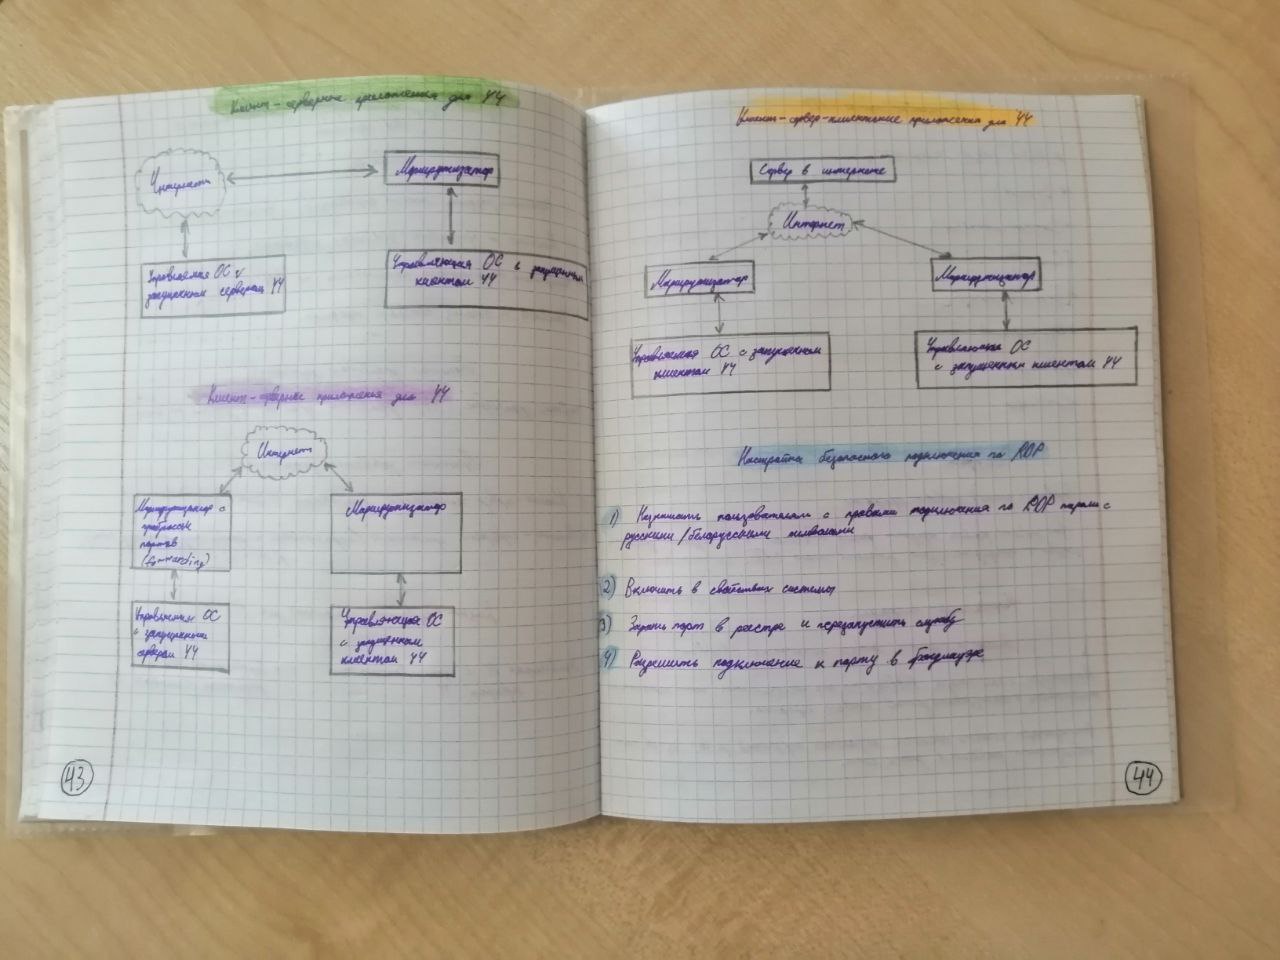 Клиент-серверные приложения для УУ
Интернет
Маршрутизатор
Управляемая ОС с
запущенным сервером УУ
Управляющая ОС с запущенным
клиентом УУ
Клиент-серверные приложения для УУ
Интернет
Маршрутизатор с
пробросом
портов
(forwarding)
Маршрутизатор
Управляемая ОС
с запущенным
сервером УУ
Управляющая ОС
с запущенным
клиентом УУ
43
Клиент-сервер-клиентские приложения для УУ
Сервер в интернете
Интернет
Маршрутизатор
Маршрутизатор
Управляемая ОС с запущенным
клиентом УУ
Управляющая ОС
с запущенным клиентом УУ
Настройка безопасного подключения по RDP
1) Назначить пользователям с правами подключения по RDP пароли с
русскими/белорусскими символами
2) Включить в свойствах системы
3) Задать порт в реестре и перезапустить службу
4) Разрешить подключение к порту в брандмауэре
44